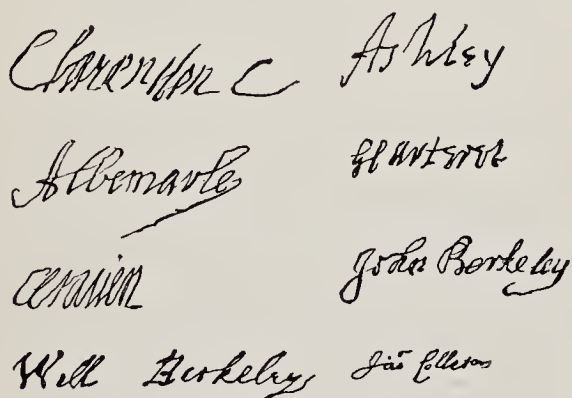 Clarendon C
Ashley
Albemarle
G Carteret
Craven
John Berkeley
Will Berkeley
Jno Colleton